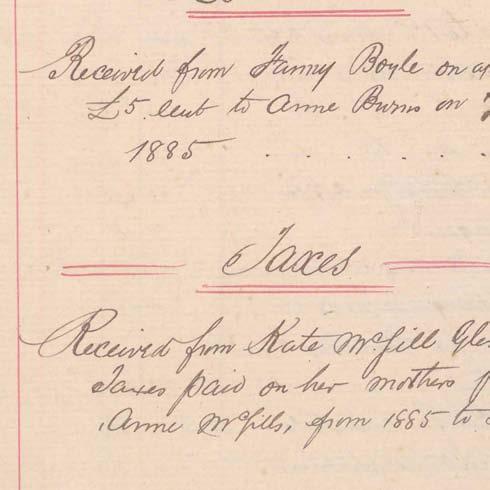 Received from Fanny Boyle on
£5 lent to Anne Burns on
1885 . . . . .
Taxes
Received from Kate McGill
Taxes paid on her mothers
Anne McGills, from 1885 to